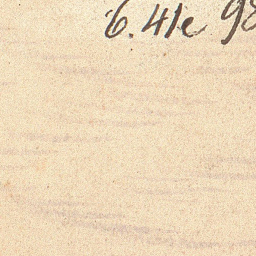 6.41e 98